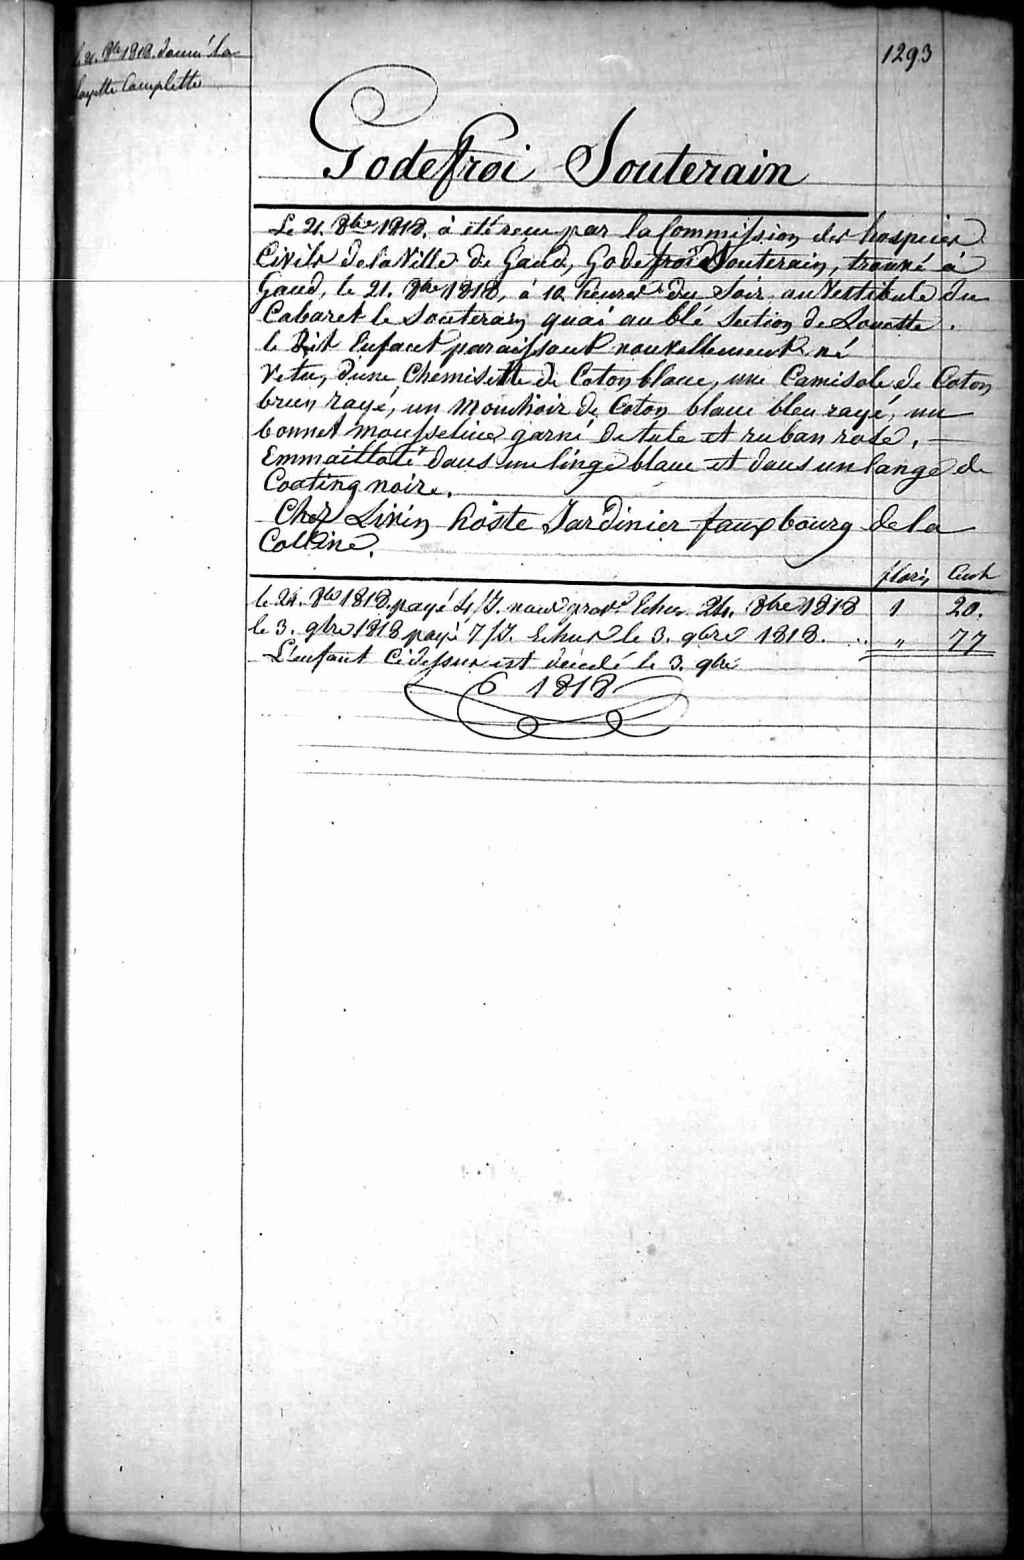 le 21. 8bre 1818. donné la
layette Complette
1293
Godefroi Souterain
Le 21. 8bre 1818. à été reçu par la Commission des hospices
Civils de la Ville de Gand, Godefroi Souterain, trouvé à
Gand, le 21. 8bre 1818, à 10 heures du Soir au Vestibule du
Cabaret le Souterain quai au blé Section de
le Dit Enfant paraissant nouvellement né
Vetu, d'une Chemisette de Coton blanc, une Camisole de Coton
brun rayé, un Mouchoir de Coton blanc bleu rayé, un
bonnet mousseline garni de tule et ruban rose,
Emmailloté dans un linge blanc et dans un lange de
Coating noire.
Chez Livin hoste Jardinier fauxbourg de la
Colline.
florin Cent
le 24. 8bre 1818. payé 4/J. Echus 24. 8bre 1818 1 20.
le 3. 9bre 1818 payé 7/J. Echus le 3. 9bre 1818. .. " 77
L'enfant Cidessus est décédé le 3. 9bre
1818